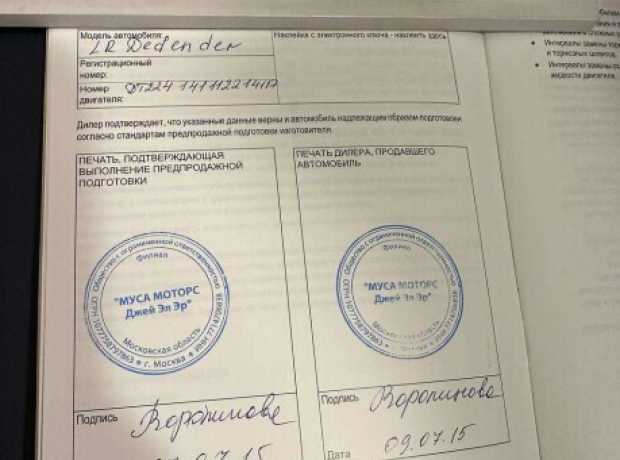 Модель автомобиля:
LR Dedender
Наклейка с электронного ключа - наклеить здесь
Регистрационный
номер:
Номер
двигателя:
Дилер подтверждает, что указанные данные верны и автомобиль надлежащим образом подготовлен
согласно стандартам предпродажной подготовки изготовителя.
ПЕЧАТЬ, ПОДТВЕРЖДАЮЩАЯ
ВЫПОЛНЕНИЕ ПРЕДПРОДАЖНОЙ
ПОДГОТОВКИ
ПЕЧАТЬ ДИЛЕРА, ПРОДАВШЕГО
АВТОМОБИЛЬ
Общество с ограниченной ответственностью
филиал
"МУСА МОТОРС
Джей Эл Эр"
Московская область
г. Москва
Общество с ограниченной ответственностью
филиал
"МУСА МОТОРС
Джей Эл Эр"
Московская область
г. Москва
Подпись
Подпись
Дата
09.07.15
07.15
Интервалы замены
и тормозных шлангов.
Интервалы замены
жидкости двигателя.